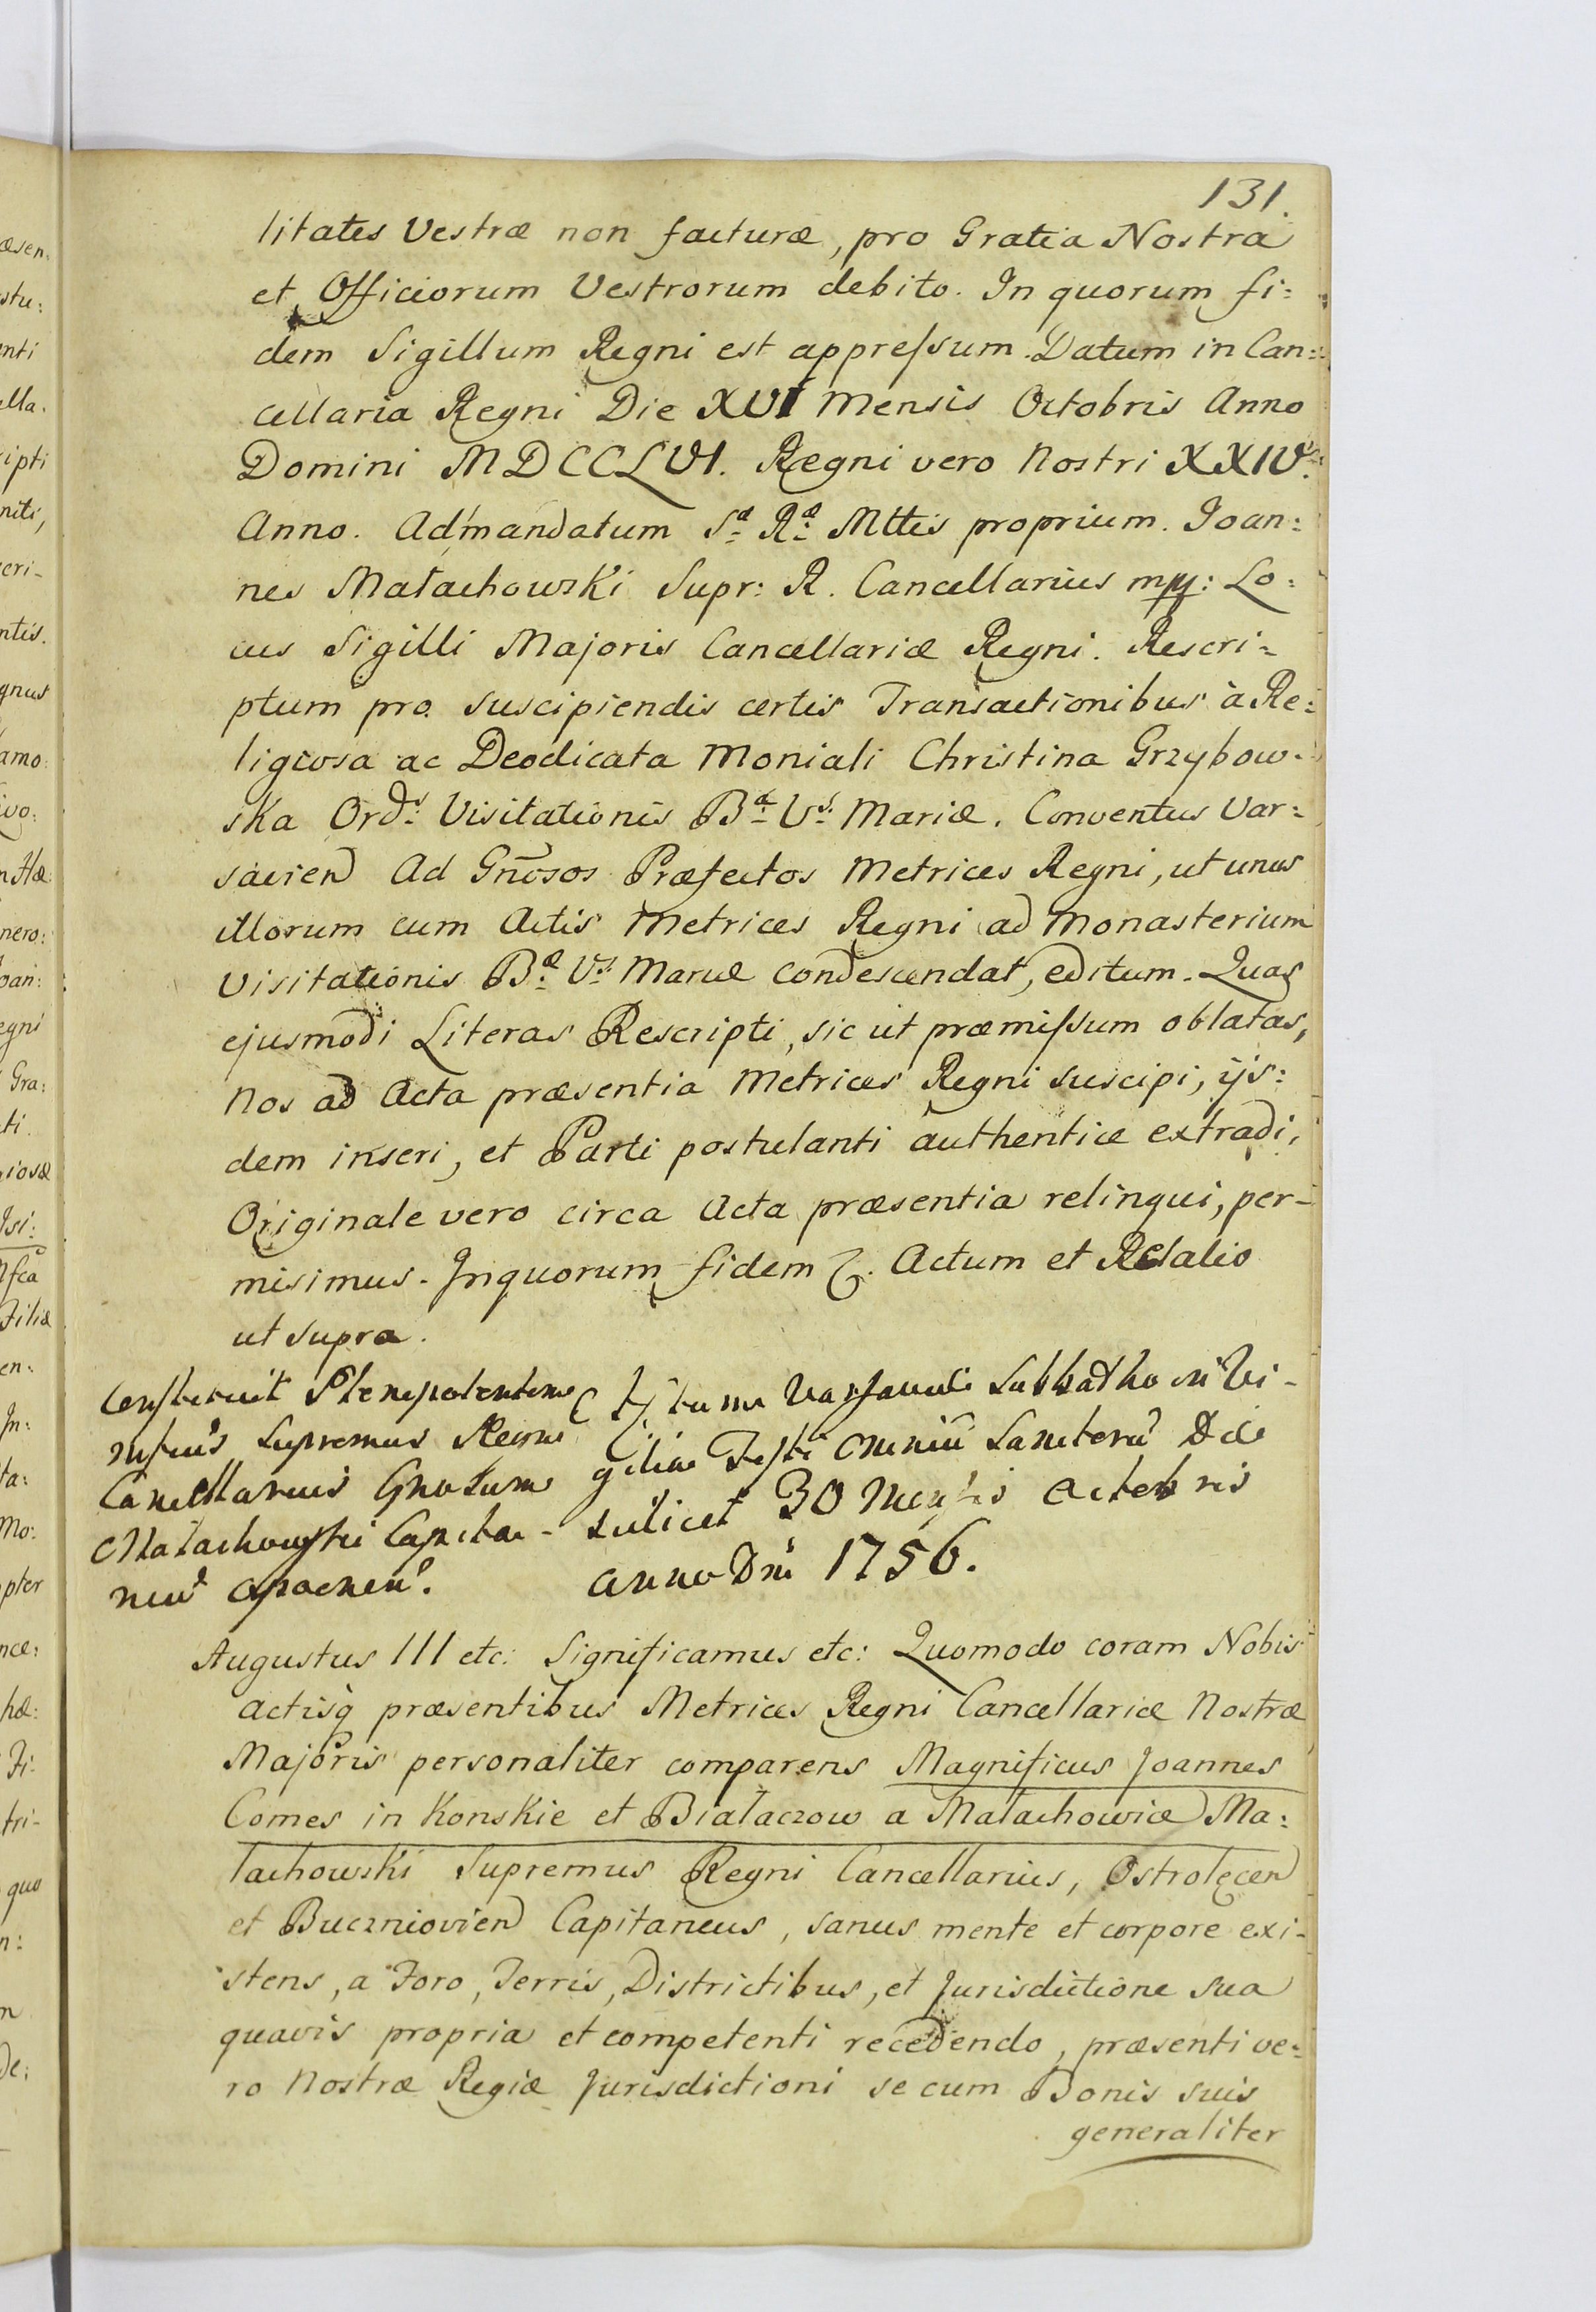 131.
litates Vestræ non facturæ, pro Gratia Nostra
et Officiorum Vestrorum debito. In quorum fi:
dem Sigillum Regni est appreſsum. Datum in Can:
cellaria Regni Die XVI Mensis Octobris Anno
Domini MDCCLVI. Regni vero Nostri XXIV.
Anno. Ad mandatum Sæ Ræ Mttis proprium. Joan:
nes Małachowski Supr: R. Cancellarius mp: Lo:
cus Sigilli Majoris Cancellariæ Regni. Rescri:
ptum pro suscipiendis certis Transactionibus à Re:
ligiosa ac Deodicata Moniali Christina Grzybow:
ska Ordis Visitationis Bæ Vs Mariæ. Conventus Var:
savien Ad Gñosos Præfectos Metrices Regni, ut unus
illorum cum Actis Metrices Regni ad Monasterium
Visitationis Bæ Vs Mariæ condescendat, editum. Quas
ejusmodi Literas Rescripti, sic ut præmiſsum oblatas,
Nos ad Acta præsentia Metrices Regni suscipi, ijs:
dem inseri, et Parti postulanti authentice extradi,
Originale vero circa Acta præsentia relinqui, per-
misimus. In quorum fidem &. Actum et Relatio
ut supra.
Constituit Plenipotentem
Supremus Regni
Cancellarius Gnosum
Małachowski Capita-
neu Opocnen.
Actum Varsaviæ Sabbatho in Vi-
gilia Festi Omniũ Sanctorũ Die
scilicet 30 Mensis Octobris
anno Dni 1756.
Augustus III etc: Significamus etc: Quomodo coram Nobis
Actisq præsentibus Metrices Regni Cancellariæ Nostræ
Majoris personaliter comparens Magnificus Joannes
Comes in Konskie et Białaczow a Małachowice Ma:
łachowski Supremus Regni Cancellarius, Ostrołęcen
et Buczniovien Capitaneus, sanus mente et corpore exi-
stens, a Foro, Terris, Districtibus, et Jurisdictione sua
quavis propria et competenti recedendo, præsenti ve:
ro Nostræ Regiæ Jurisdictioni se cum Bonis suis
generaliter